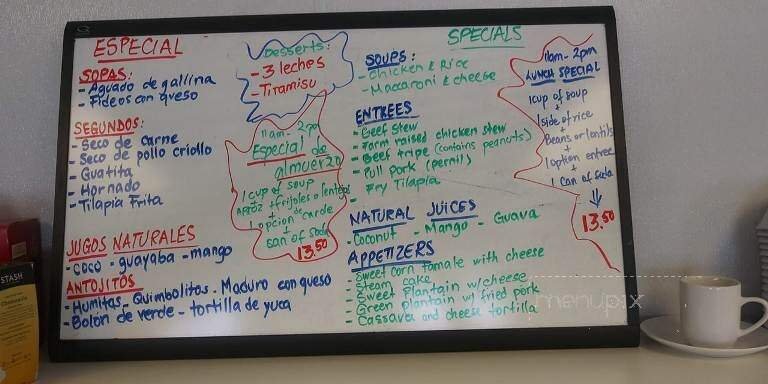 ESPECIAL
SOPAS:
- Aguado de gallina
- Fideos con queso
SEGUNDOS:
- Seco de carne
- Seco de pollo criollo
- Guatita
- Hornado
- Tilapia Frita
JUGOS NATURALES
- coco - guayaba - mango
ANTOJITOS
- Humitas - Quimbolitos - Maduro con queso
- Bolon de verde - tortilla de yuca
Desserts:
- 3 leches
- Tiramisu
11am - 2pm
Especial de
almuerzo
1 cup of soup
+
Arroz + frijoles o lentejas
+
1 opcion de carde
+
can of soda
13.50
SPECIALS
SOUPS:
- Chicken & Rice
- Macaroni & cheese
ENTREES
- Beef Stew
- Farm raised chicken stew
- Beef tripe (contains peanuts)
- Pull Pork (pernil)
- Fry Tilapia
NATURAL JUICES
- Coconut - Mango - Guava
APPETIZERS
- Sweet corn tamale with cheese
- Steam cake
- Sweet Plantain w/ cheese
- Green plantain w/ fried pork
- Cassava and cheese tortilla
11am - 2pm
LUNCH SPECIAL
1 cup of soup
+
1 side of rice
+
Beans or lentils
+
1 option entree
+
1 Can of Soda
13.50
STASH
menupix